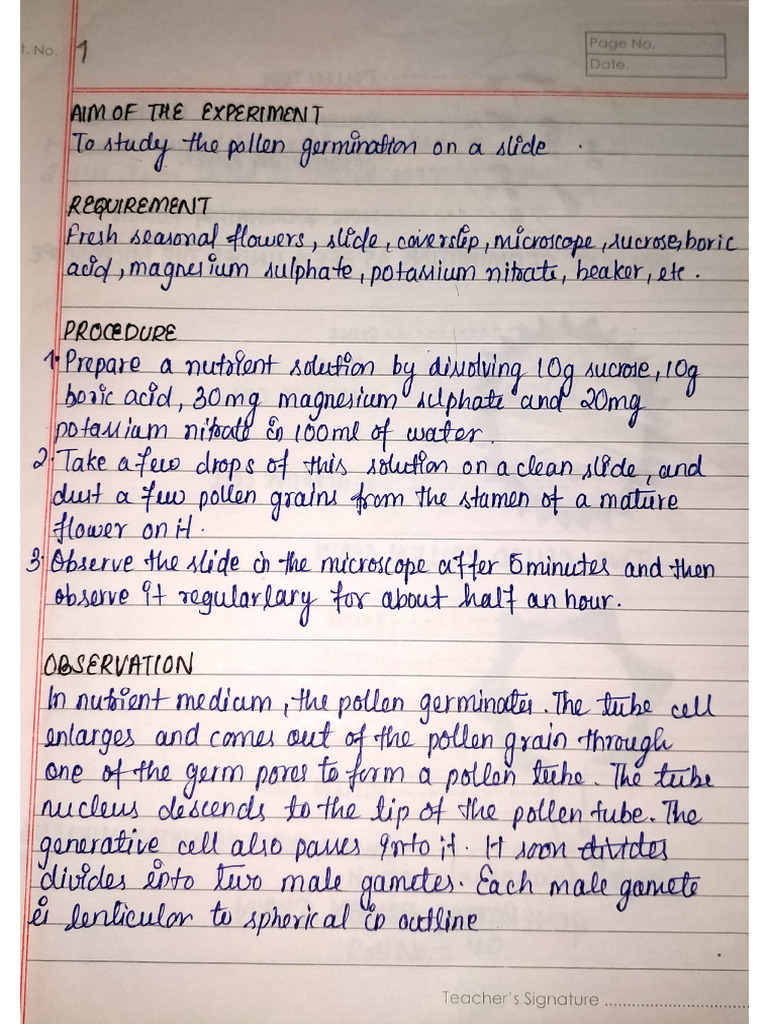 t. No. 1
Page No.
Date.
AIM OF THE EXPERIMENT
To study the pollen germination on a slide .
REQUIREMENT
Fresh seasonal flowers, slide, coverslip, microscope, sucrose, boric
acid, magnesium sulphate, potassium nitrate, beaker, etc.
PROCEDURE
1. Prepare a nutrient solution by dissolving 10g sucrose, 10g
boric acid, 30mg magnesium sulphate and 20mg
potassium nitrate in 100ml of water.
2. Take a few drops of this solution on a clean slide, and
dust a few pollen grains from the stamen of a mature
flower on it.
3. Observe the slide in the microscope after 5minutes and then
observe it regularlary for about half an hour.
OBSERVATION
In nutrient medium, the pollen germinates. The tube cell
enlarges and comes out of the pollen grain through
one of the germ pores to form a pollen tube. The tube
nucleus descends to the tip of the pollen tube. The
generative cell also passes into it. It soon divides
divides into two male gametes. Each male gamete
is lenticular to spherical in outline
Teacher's Signature